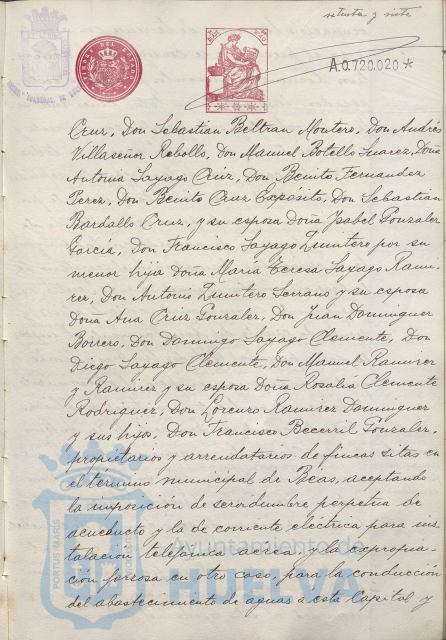 setenta y siete
A.0.720.020*
Cruz, Don Sebastian Beltran Montero, Don Andrés
Villaseñor Rebollo, Don Manuel Botello Suarez, Doña
Antonia Sayago Cruz, Don Benito Fernandez
Perez, Don Benito Cruz Expósito, Don Sebastian
Bardallo Cruz, y su esposa Doña Ysabel Gonzalez
Garcia, Don Francisco Sayago Quintero por su
menor hija Doña Maria Teresa Sayago Rami-
rez, Don Antonio Quintero Serrano y su esposa
Doña Ana Cruz Gonzalez, Don Juan Dominguez
Borrero, Don Domingo Sayago Clemente, Don
Diego Sayago Clemente, Don Manuel Ramirez
y Ramirez y su esposa Doña Rosalia Clemente
Rodriguez, Don Lorenzo Ramirez Dominguez
y sus hijos, Don Francisco Becerril Gonzalez,
propietarios y arrendatarios de fincas sitas en
el término municipal de Beas, aceptando
la imposición de servidumbre perpetua de
acueducto y la de corriente electrica para ins
talación telefonica aerea y la expropia-
cion forzosa en otro caso, para la conducción
del abastecimiento de aguas a esta Capital y
Ayuntamiento de
HUELVA
PORTUS MARIS